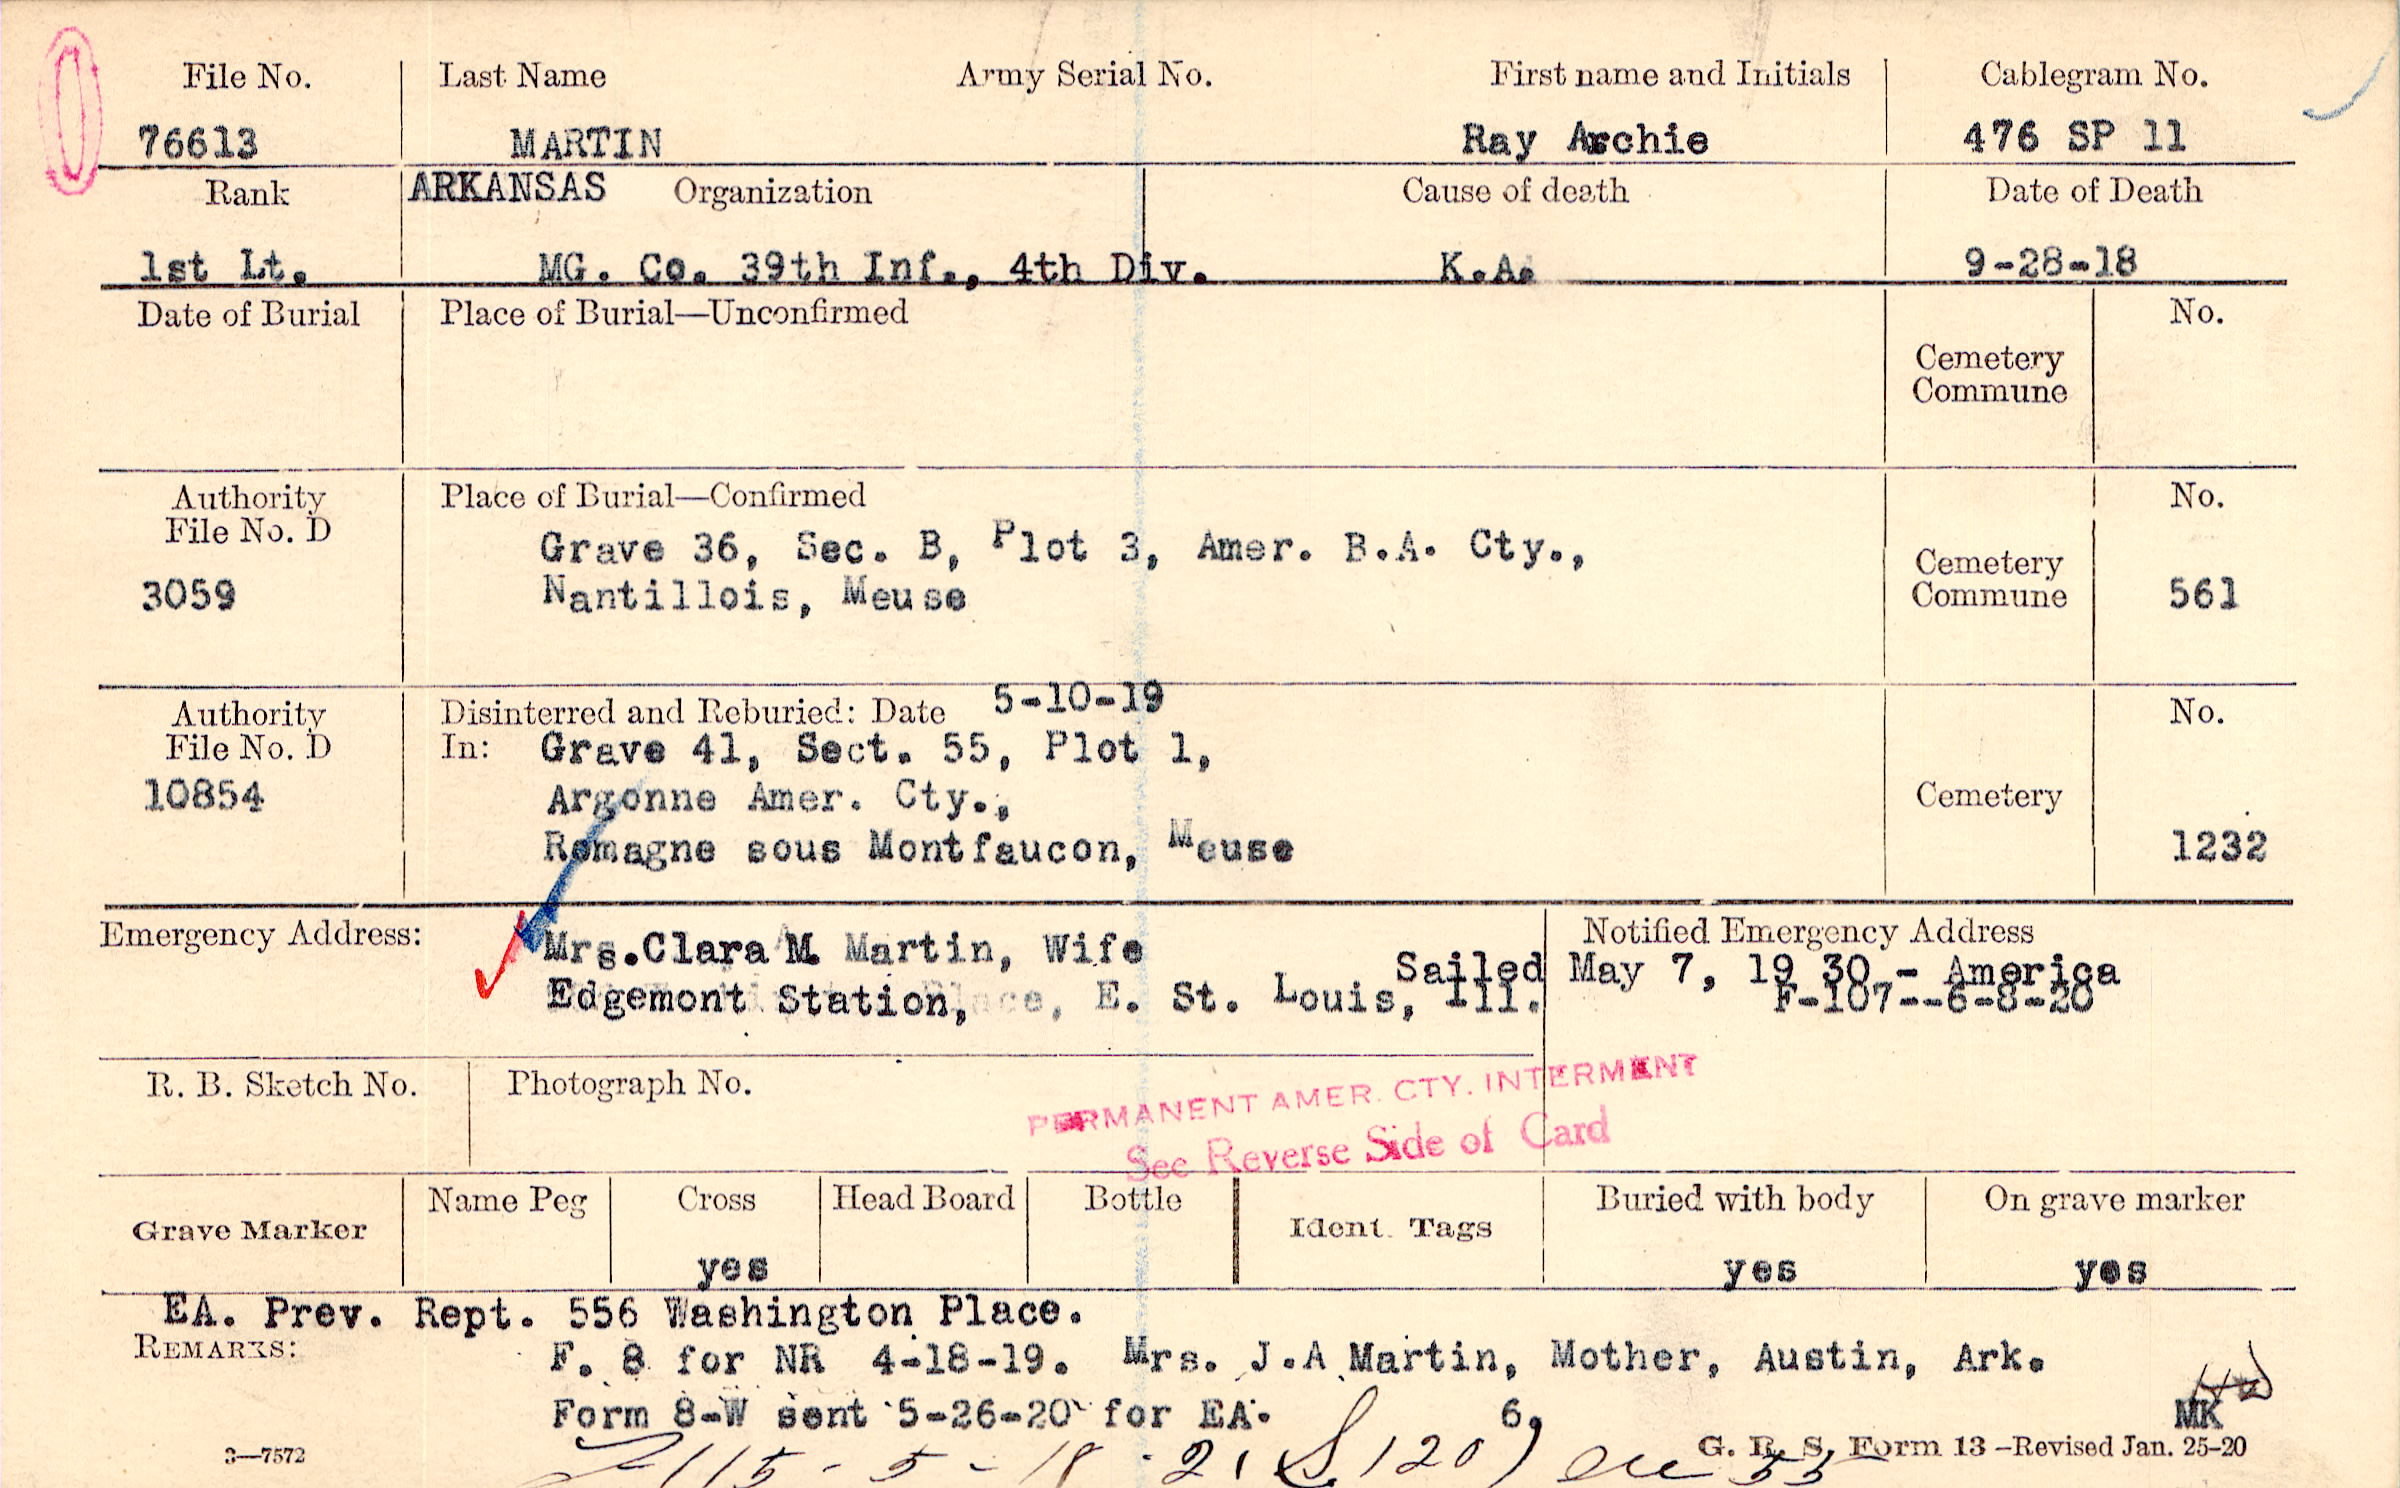 File No. Last Name Army Serial No. First name and Initials Cablegram No.
76613 MARTIN Ray Archie 476 SP 11
Rank ARKANSAS Organization Cause of death Date of Death
1st Lt. MG. Co. 39th Inf., 4th Div. K.A. 9-28-18
Date of Burial Place of Burial—Unconfirmed No.
Cemetery
Commune
Authority Place of Burial—Confirmed No.
File No. D
Grave 36, Sec. B, Plot 3, Amer. B.A. Cty.,
Cemetery
3059 Nantillois, Meuse Commune 561
Authority Disinterred and Reburied: Date 5-10-19 No.
File No. D In: Grave 41, Sect. 55, Plot 1,
10854 Argonne Amer. Cty., Cemetery
Romagne sous Montfaucon, Meuse 1232
Emergency Address: Mrs.Clara M. Martin, Wife Notified Emergency Address
Sailed May 7, 19 30 - America
Edgemont Station, E. St. Louis, Ill. F-107--6-8-20
R. B. Sketch No. Photograph No.
PERMANENT AMER. CTY. INTERMENT
See Reverse Side of Card
Grave Marker Name Peg Cross Head Board Bottle Ident. Tags Buried with body On grave marker
yes yes yes
EA. Prev. Rept. 556 Washington Place.
REMARKS: F. 8 for NR 4-18-19. Mrs. J.A Martin, Mother, Austin, Ark.
Form 8-W sent 5-26-20 for EA. 6, MK
3—7572 G. R. S. Form 13—Revised Jan. 25-20
115-5-18-21 120) 55